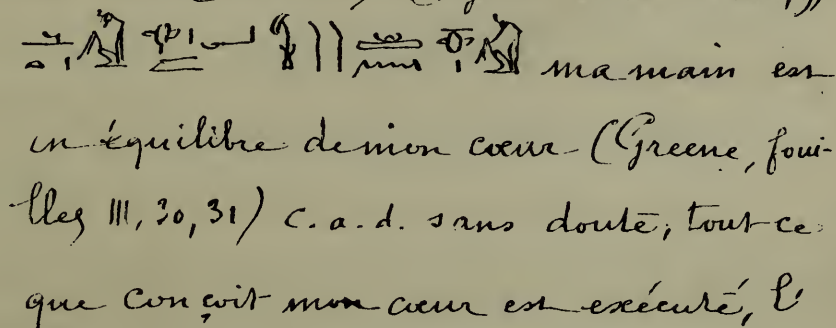 ma main est
en équilibre de mon cœur (Greene, foui-
lles III, 30, 31) c.a.d. sans doute, tout ce
que conçoit mon cœur est exécuté, l'